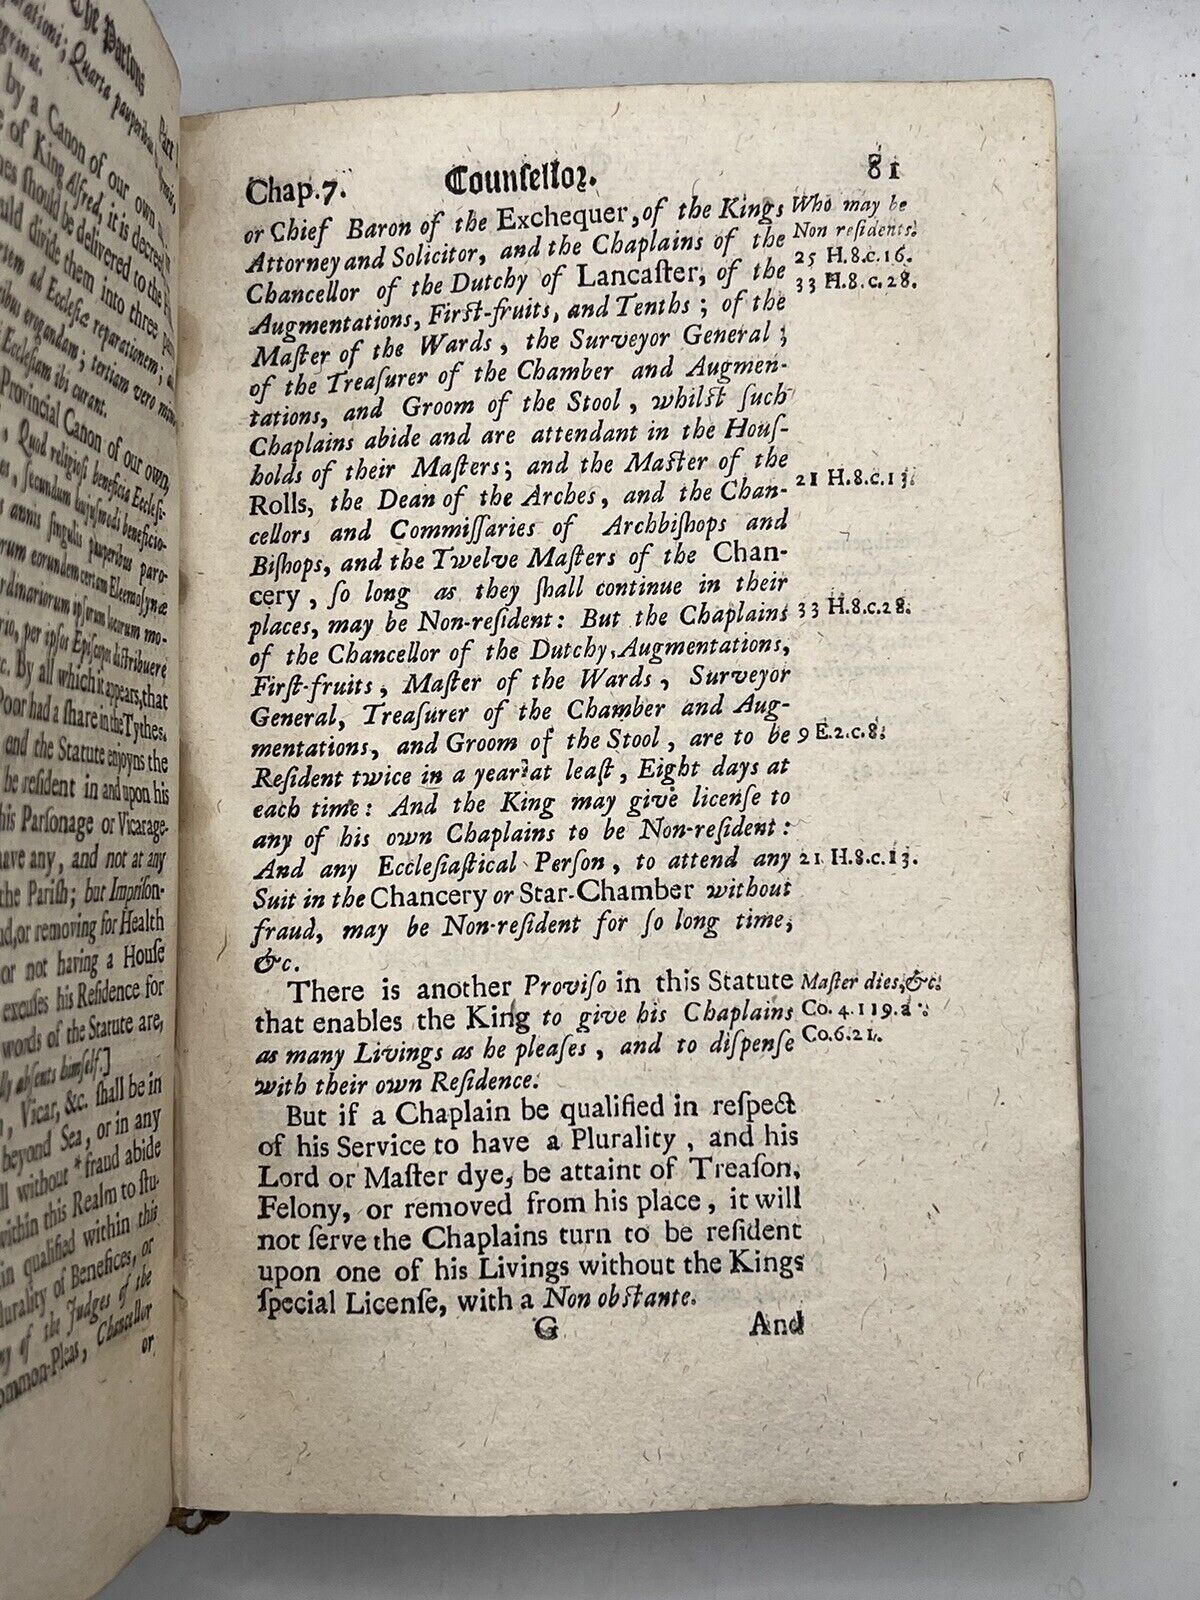 The Parsons
Part
Quarta pauperibus
by a Canon of our own
of King Alfred, it is decre
should be delivered to the
uld divide them into three
ad Ecclesiæ reparationem;
erogandam; tertiam vero
Ecclesiam ibi curant.
Provincial Canon of our own,
Quod religiosi beneficia Ecclesi-
secundum hujusmodi beneficio-
annis singulis pauperibus paro-
eorundem certam Eleemosynæ
rdinariorum ipsorum locorum mo-
per ipsos Episcopos distribuere
c. By all which it appears, that
Poor had a ſhare in the Tythes.
and the Statute enjoyns the
be reſident in and upon his
his Parſonage or Vicarage-
have any, and not at any
the Pariſh; but Impriſon-
or removing for Health
or not having a Houſe
excuſes his Reſidence for
words of the Statute are,
ly abſents himſelf.]
Vicar, &c. ſhall be in
beyond Sea, or in any
ll without * fraud abide
within this Realm to ſtu-
in qualified within this
lurality of Benefices, or
of the Judges of the
ommon-Pleas, Chancellor
or
Chap. 7. Counſellor. 81
or Chief Baron of the Exchequer, of the Kings Who may be
Attorney and Solicitor, and the Chaplains of the Non reſidents.
Chancellor of the Dutchy of Lancaſter, of the 25 H.8.c.16.
Augmentations, Firſt-fruits, and Tenths; of the 33 H.8.c.28.
Maſter of the Wards, the Surveyor General;
of the Treaſurer of the Chamber and Augmen-
tations, and Groom of the Stool, whilſt ſuch
Chaplains abide and are attendant in the Houſ-
holds of their Maſters; and the Maſter of the
Rolls, the Dean of the Arches, and the Chan- 21 H.8.c.13.
cellors and Commiſſaries of Archbiſhops and
Biſhops, and the Twelve Maſters of the Chan-
cery, ſo long as they ſhall continue in their
places, may be Non-reſident: But the Chaplains 33 H.8.c.28.
of the Chancellor of the Dutchy, Augmentations,
Firſt-fruits, Maſter of the Wards, Surveyor
General, Treaſurer of the Chamber and Aug-
mentations, and Groom of the Stool, are to be 9 E.2.c.8.
Reſident twice in a year at leaſt, Eight days at
each time: And the King may give licenſe to
any of his own Chaplains to be Non-reſident:
And any Eccleſiaſtical Perſon, to attend any 21 H.8.c.13.
Suit in the Chancery or Star-Chamber without
fraud, may be Non-reſident for ſo long time,
&c.
There is another Proviſo in this Statute Maſter dies, &c.
that enables the King to give his Chaplains Co. 4. 119. a.
as many Livings as he pleaſes, and to diſpenſe Co. 6. 21.
with their own Reſidence.
But if a Chaplain be qualified in reſpect
of his Service to have a Plurality, and his
Lord or Maſter dye, be attaint of Treaſon,
Felony, or removed from his place, it will
not ſerve the Chaplains turn to be reſident
upon one of his Livings without the Kings
ſpecial Licenſe, with a Non obſtante.
G And